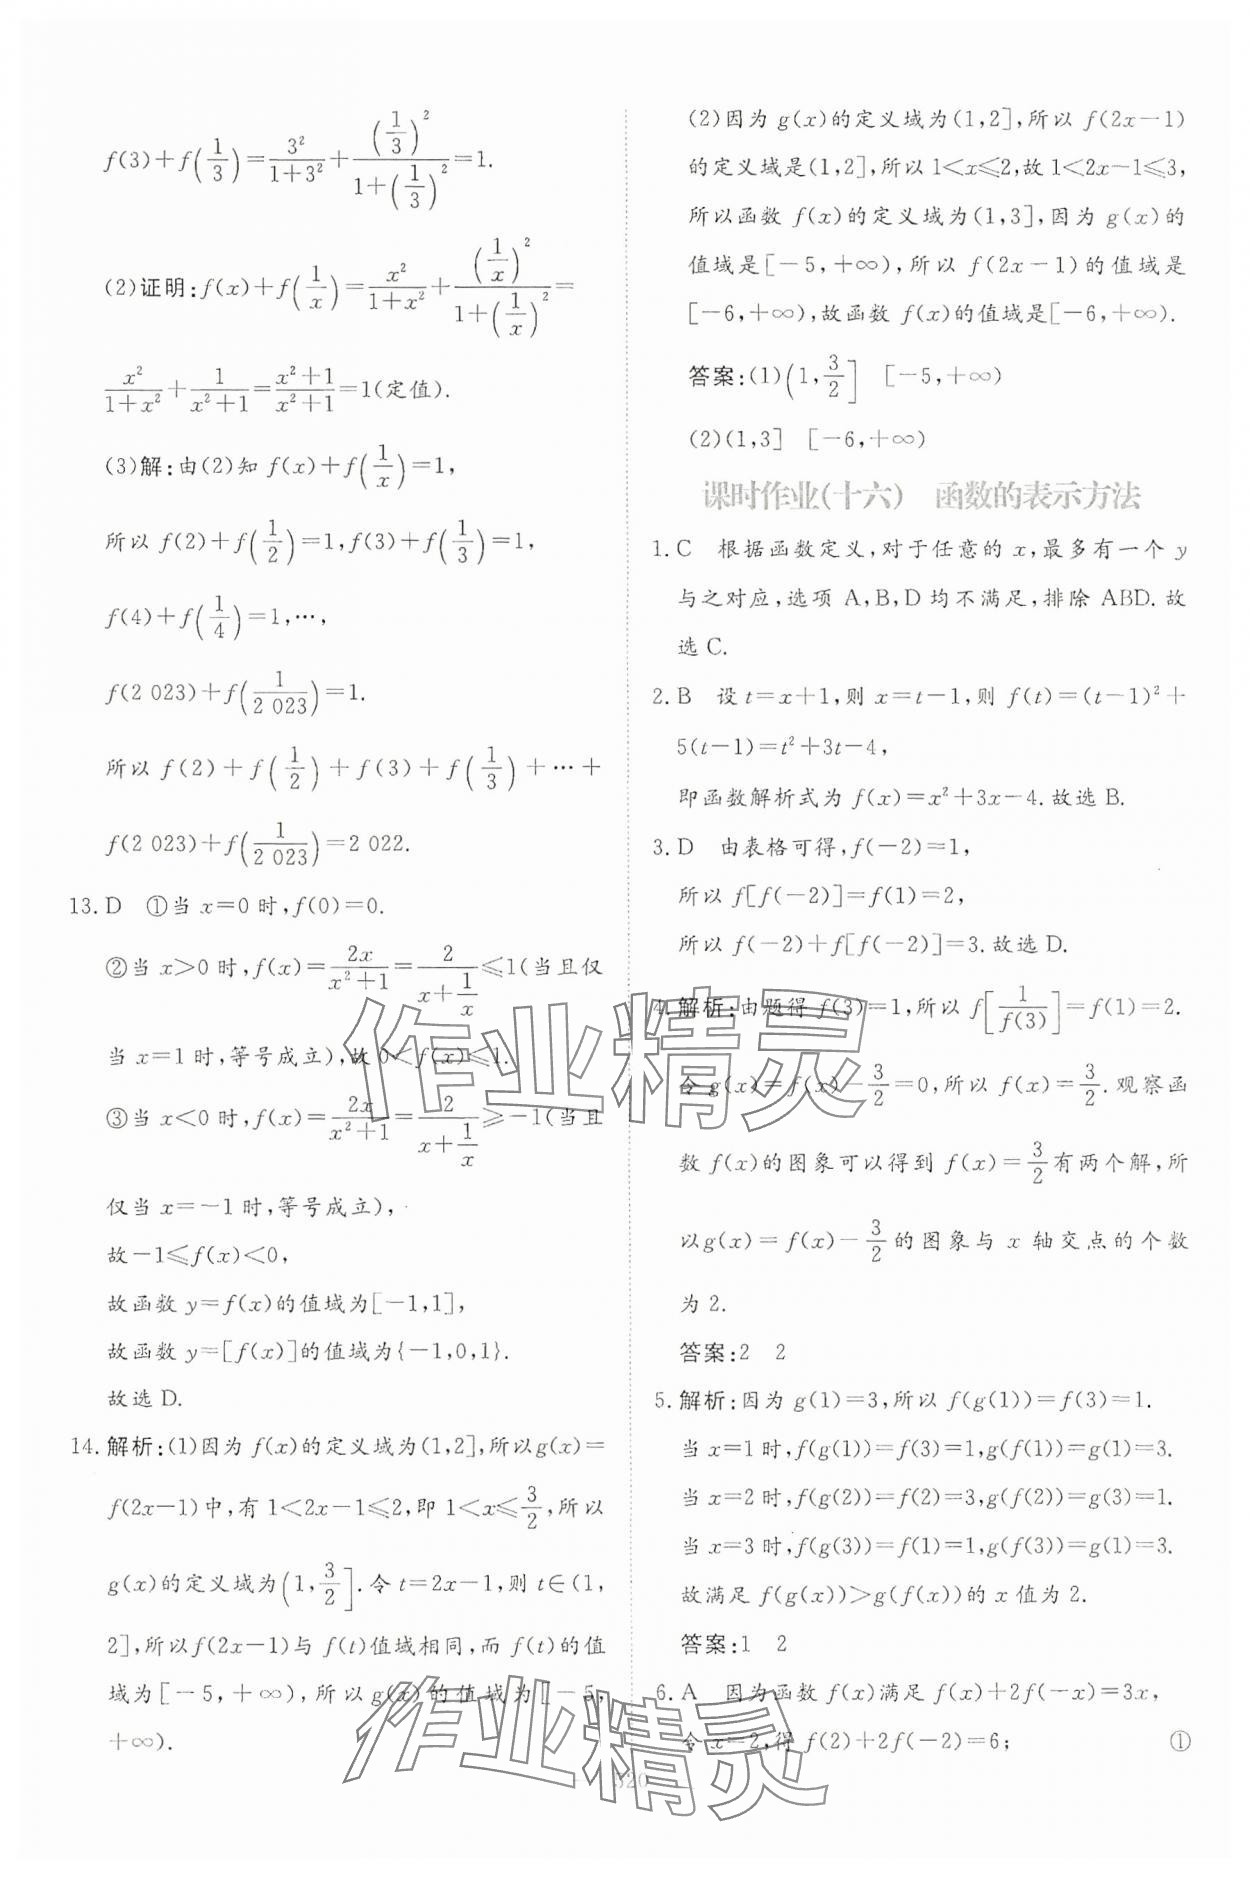 f(3)+f(1/3)=3²/(1+3²)+(1/3)²/(1+(1/3)²)=1.
(2)证明:f(x)+f(1/x)=x²/(1+x²)+(1/x)²/(1+(1/x)²)=
x²/(1+x²)+1/(x²+1)=(x²+1)/(x²+1)=1(定值).
(3)解:由(2)知 f(x)+f(1/x)=1,
所以 f(2)+f(1/2)=1,f(3)+f(1/3)=1,
f(4)+f(1/4)=1,…,
f(2 023)+f(1/2 023)=1.
所以 f(2)+f(1/2)+f(3)+f(1/3)+…+
f(2 023)+f(1/2 023)=2 022.
13.D ①当 x=0 时,f(0)=0.
②当 x>0 时,f(x)=2x/(x²+1)=2/(x+1/x)≤1(当且仅
当 x=1 时,等号成立),故 0<f(x)≤1.
③当 x<0 时,f(x)=2x/(x²+1)=2/(x+1/x)≥-1(当且
仅当 x=-1 时,等号成立),
故-1≤f(x)<0,
故函数 y=f(x)的值域为[-1,1],
故函数 y=[f(x)]的值域为{-1,0,1}.
故选 D.
14.解析:(1)因为 f(x)的定义域为(1,2],所以g(x)=
f(2x-1)中,有 1<2x-1≤2,即 1<x≤3/2,所以
g(x)的定义域为(1,3/2].令 t=2x-1,则 t∈(1,
2],所以f(2x-1)与 f(t)值域相同,而 f(t)的值
域为[-5,+∞),所以g(x)的值域为[-5,
+∞).
(2)因为 g(x)的定义域为(1,2],所以 f(2x-1)
的定义域是(1,2],所以 1<x≤2,故 1<2x-1≤3,
所以函数 f(x)的定义域为(1,3],因为 g(x)的
值域是[-5,+∞),所以 f(2x-1)的值域是
[-6,+∞),故函数 f(x)的值域是[-6,+∞).
答案:(1)(1,3/2] [-5,+∞)
(2)(1,3] [-6,+∞)
课时作业(十六) 函数的表示方法
1.C 根据函数定义,对于任意的 x,最多有一个 y
与之对应,选项 A,B,D 均不满足,排除 ABD.故
选 C.
2.B 设 t=x+1,则 x=t-1,则 f(t)=(t-1)²+
5(t-1)=t²+3t-4,
即函数解析式为 f(x)=x²+3x-4.故选 B.
3.D 由表格可得,f(-2)=1,
所以 f[f(-2)]=f(1)=2,
所以 f(-2)+f[f(-2)]=3.故选 D.
4.解析:由题得 f(3)=1,所以 f[1/f(3)]=f(1)=2.
令 g(x)=f(x)-3/2=0,所以 f(x)=3/2.观察函
数 f(x)的图象可以得到 f(x)=3/2有两个解,所
以g(x)=f(x)-3/2的图象与 x 轴交点的个数
为 2.
答案:2 2
5.解析:因为 g(1)=3,所以 f(g(1))=f(3)=1.
当 x=1 时,f(g(1))=f(3)=1,g(f(1))=g(1)=3.
当 x=2 时,f(g(2))=f(2)=3,g(f(2))=g(3)=1.
当 x=3 时,f(g(3))=f(1)=1,g(f(3))=g(1)=3.
故满足 f(g(x))>g(f(x))的 x 值为 2.
答案:1 2
6.A 因为函数 f(x)满足 f(x)+2f(-x)=3x,
令 x=2,得 f(2)+2f(-2)=6; ①
作业精灵
作业精灵